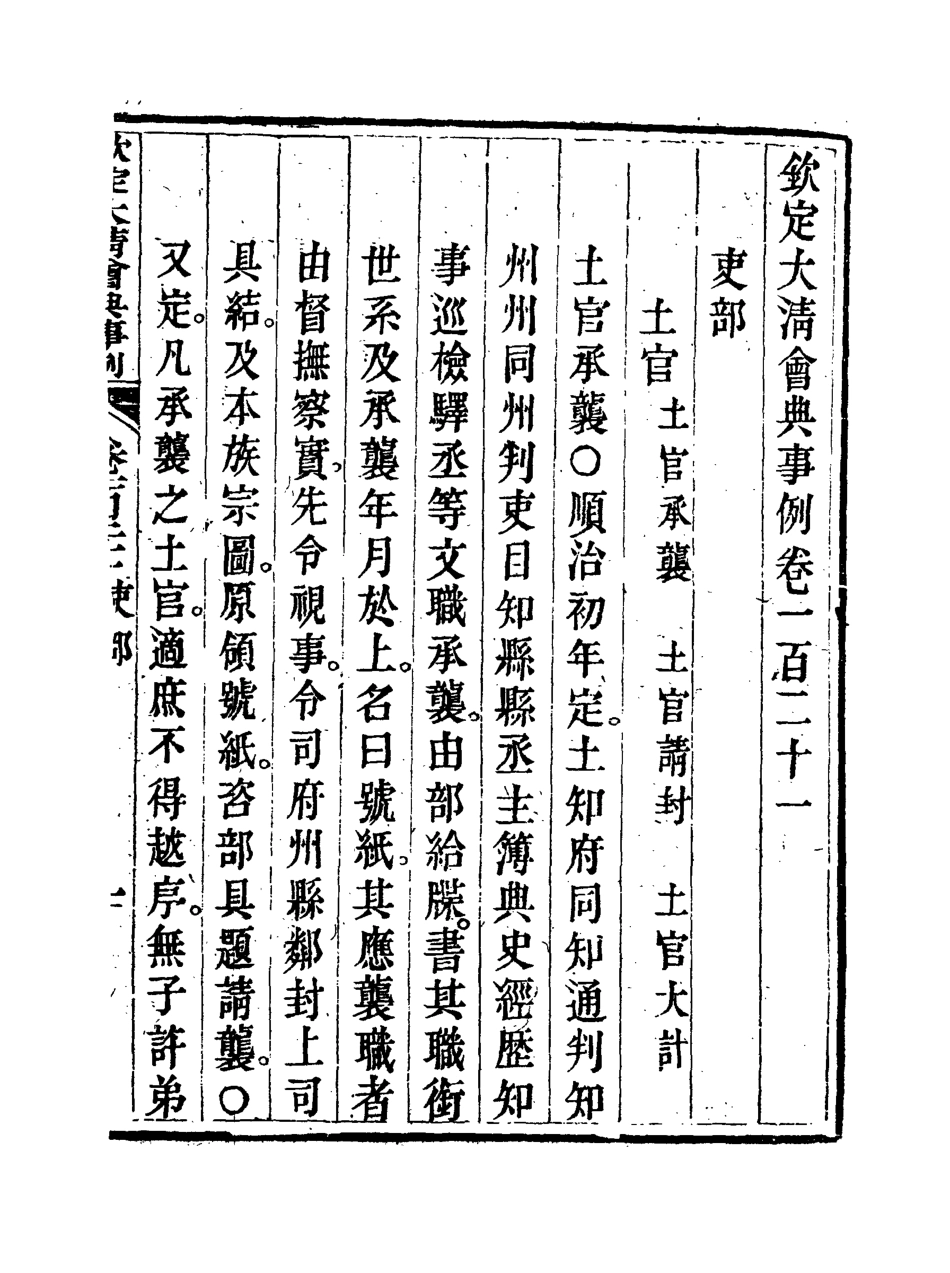 欽定大淸會典事例卷一百二十一
吏部
土官 土官承襲 土官請封 土官大計
土官承襲○順治初年定。土知府同知通判知
州州同州判吏目知縣縣丞主簿典史經歷知
事巡檢驛丞等文職承襲。由部給牒。書其職銜
世系及承襲年月於上。名曰號紙。其應襲職者
由督撫察實。先令視事。令司府州縣鄰封上司
具結。及本族宗圖。原領號紙。咨部具題請襲。○
又定。凡承襲之土官。適庶不得越序。無子許弟
欽定大淸會典事例 卷一百二十一 吏部 一